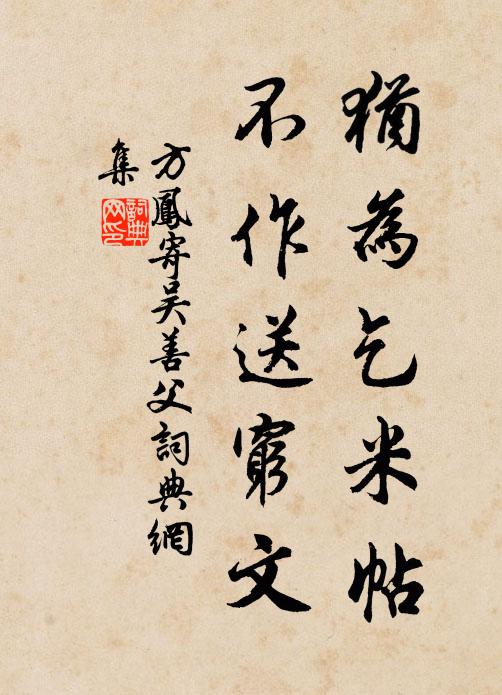 猶為乞米帖
不作送窮文
方鳳寄吳善父詞典網
集
詞典
网印